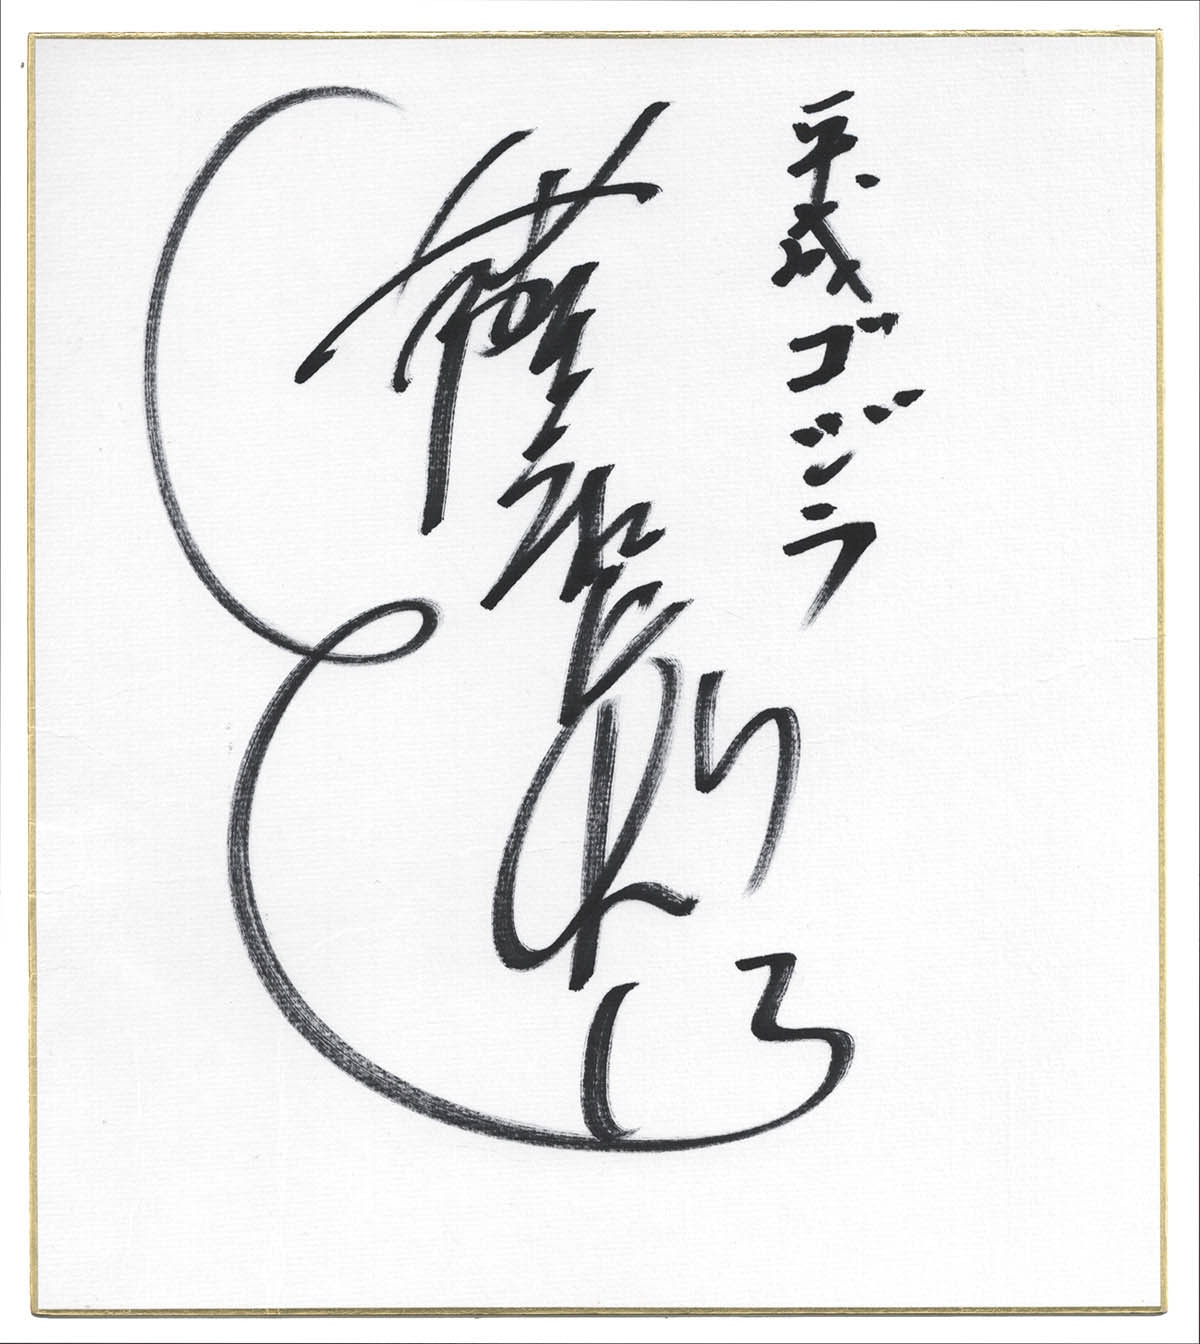 平成ゴジラ
薩摩剣八郎